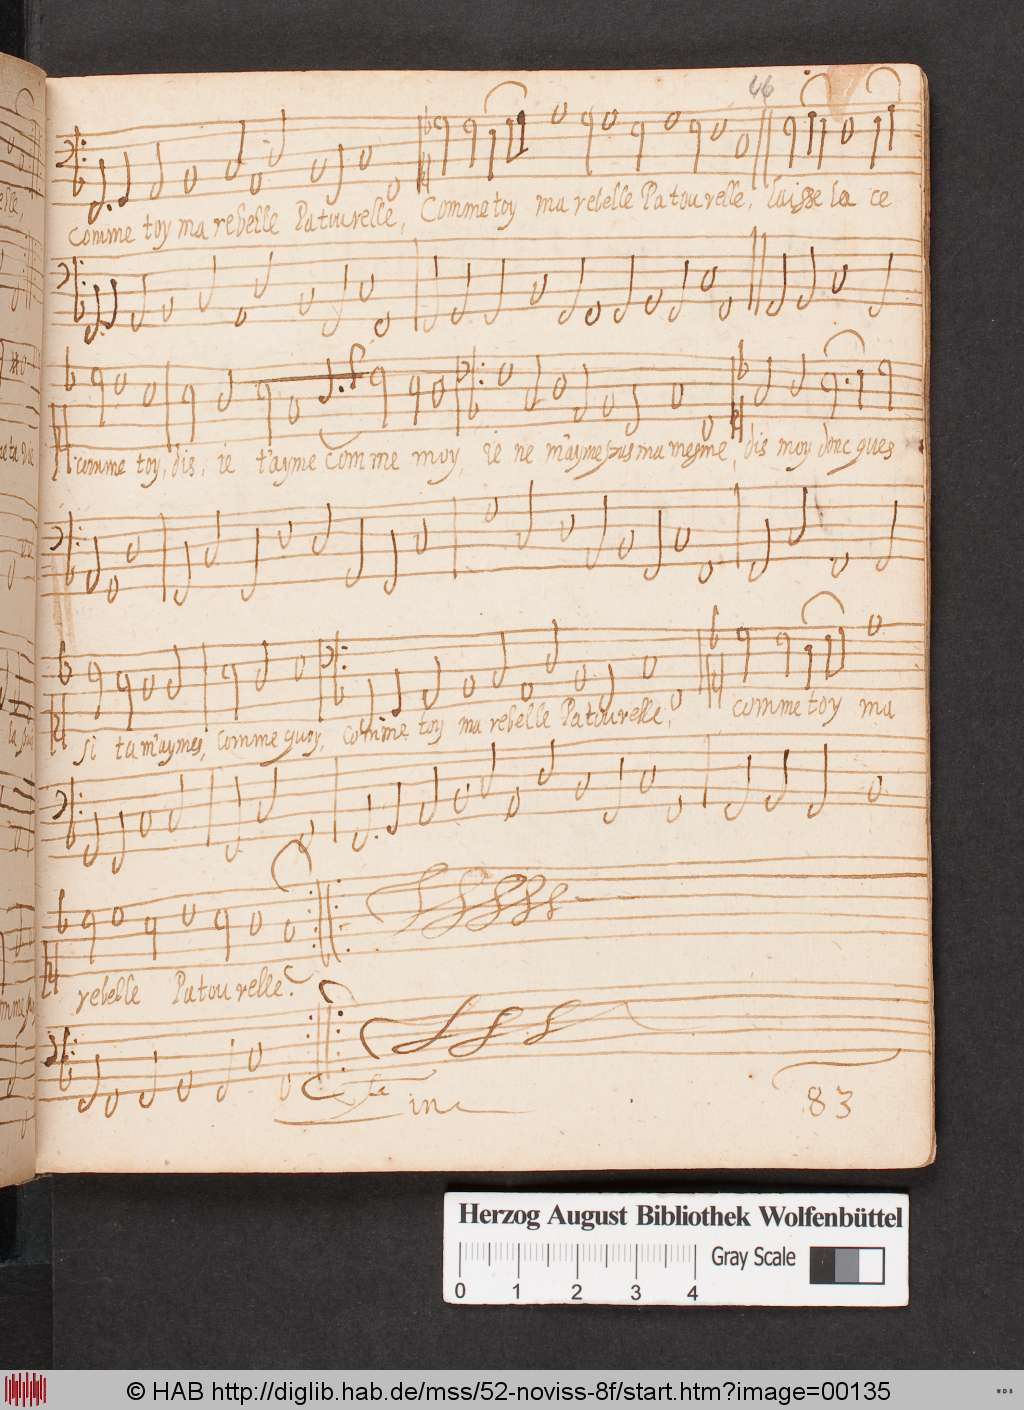 46
comme toy ma rebelle Patourelle, Comme toy ma rebelle Patourelle, laisse la ce
comme toy, dis, ie t'ayme comme moy, ie ne m'ayme pas ma mesme, dis moy donc ques
si tu m'aymes, comme quoy, comme toy ma rebelle Patourelle, comme toy ma
rebelle Patourelle.
la fine
83
Herzog August Bibliothek Wolfenbüttel
Gray Scale
0 1 2 3 4
© HAB http://diglib.hab.de/mss/52-noviss-8f/start.htm?image=00135